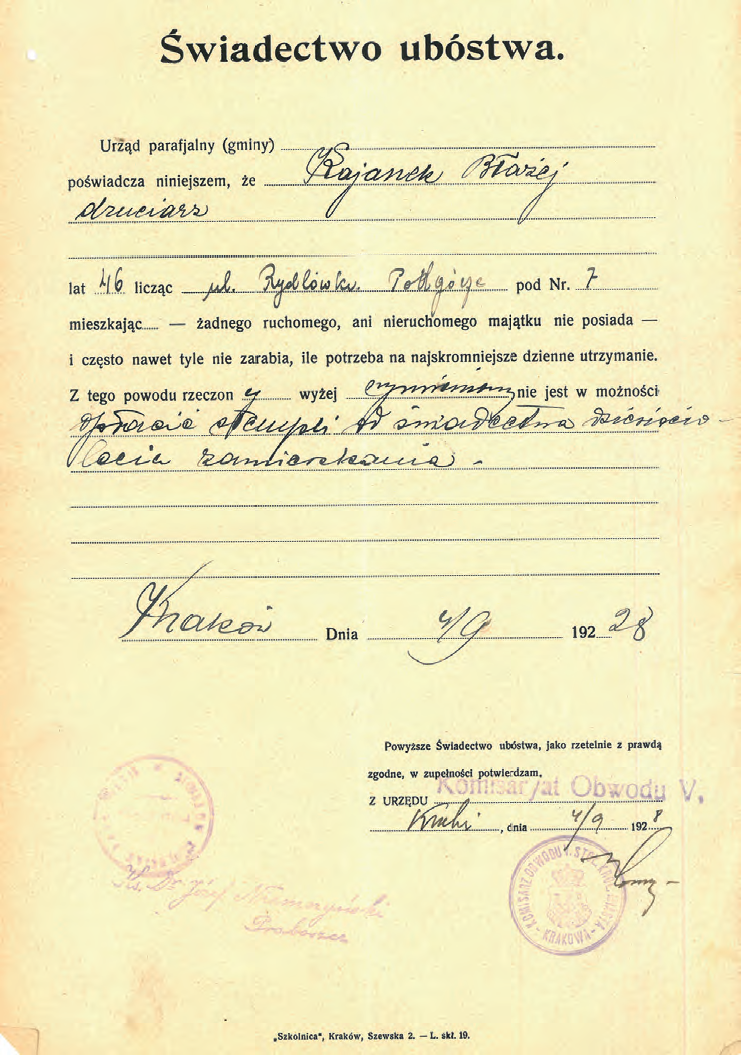 Świadectwo ubóstwa.
Urząd parafjalny (gminy)
poświadcza niniejszem, że Kajanek Błażej
druciarz
lat 46 licząc ul. Rydlówka Podgórze pod Nr. 7
mieszkając — żadnego ruchomego, ani nieruchomego majątku nie posiada —
i często nawet tyle nie zarabia, ile potrzeba na najskromniejsze dzienne utrzymanie.
Z tego powodu rzeczon y wyżej wymieniony nie jest w możności
opłacić stempli od świadectwa dziesięcio-
lecia zamieszkania -
Kraków Dnia 4/9 192 28
Powyższe Świadectwo ubóstwa, jako rzetelnie z prawdą
zgodne, w zupełności potwierdzam.
Komisarjat Obwodu V,
Z URZĘDU
, dnia 4/9 192 8
KOMISARZ OBWODU KRAKOWA
Ks. Dr. Józef
Proboszcz
„Szkolnica", Kraków, Szewska 2. — L. skł. 19.